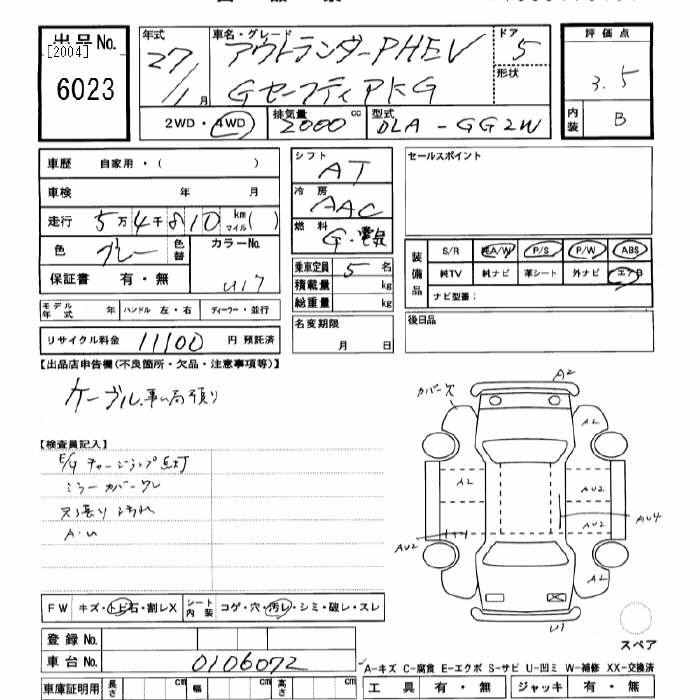 出品No.
[2004]
6023
年式
27/1月
車名・グレード
アウトランダーPHEV
GセーフティPKG
ドア
5
形状
2WD・4WD
排気量
2000 cc
型式
DLA-GG2W
評価点
3.5
内装
B
車歴 自家用・( )
車検 年 月
走行 5万4千810 km マイル( )
色 グレー 色替
カラーNo.
U17
保証書 有・無
モデル年式 年 ハンドル 左・右 ディーラー・並行
リサイクル料金 11100 円 預託済
シフト
AT
冷房
AAC
燃料
G・電気
乗車定員 5 名
積載量 kg
総重量 kg
名変期限
月 日
セールスポイント
装備品
S/R 純A/W P/S P/W ABS
純TV 純ナビ 革シート 外ナビ エアB
ナビ型番:
後日品
【出品店申告欄(不良箇所・欠品・注意事項等)】
ケーブル事ム局預り
【検査員記入】
E/g チャージランプ点灯
ミラーカバーワレ
天張り汚れ
A・U
カバー欠
A2
A2
A2
AU2
AU2
AU4
AU2
A2
U1
スペア
FW キズ・トビ石・割レX
シート内装 コゲ・穴・汚レ・シミ・破レ・スレ
登録No.
車台No. 0106072
A-キズ C-腐食 E-エクボ S-サビ U-凹ミ W-補修 XX-交換済
車庫証明用 長さ cm 幅 cm 高さ cm
工具 有・無 ジャッキ 有・無